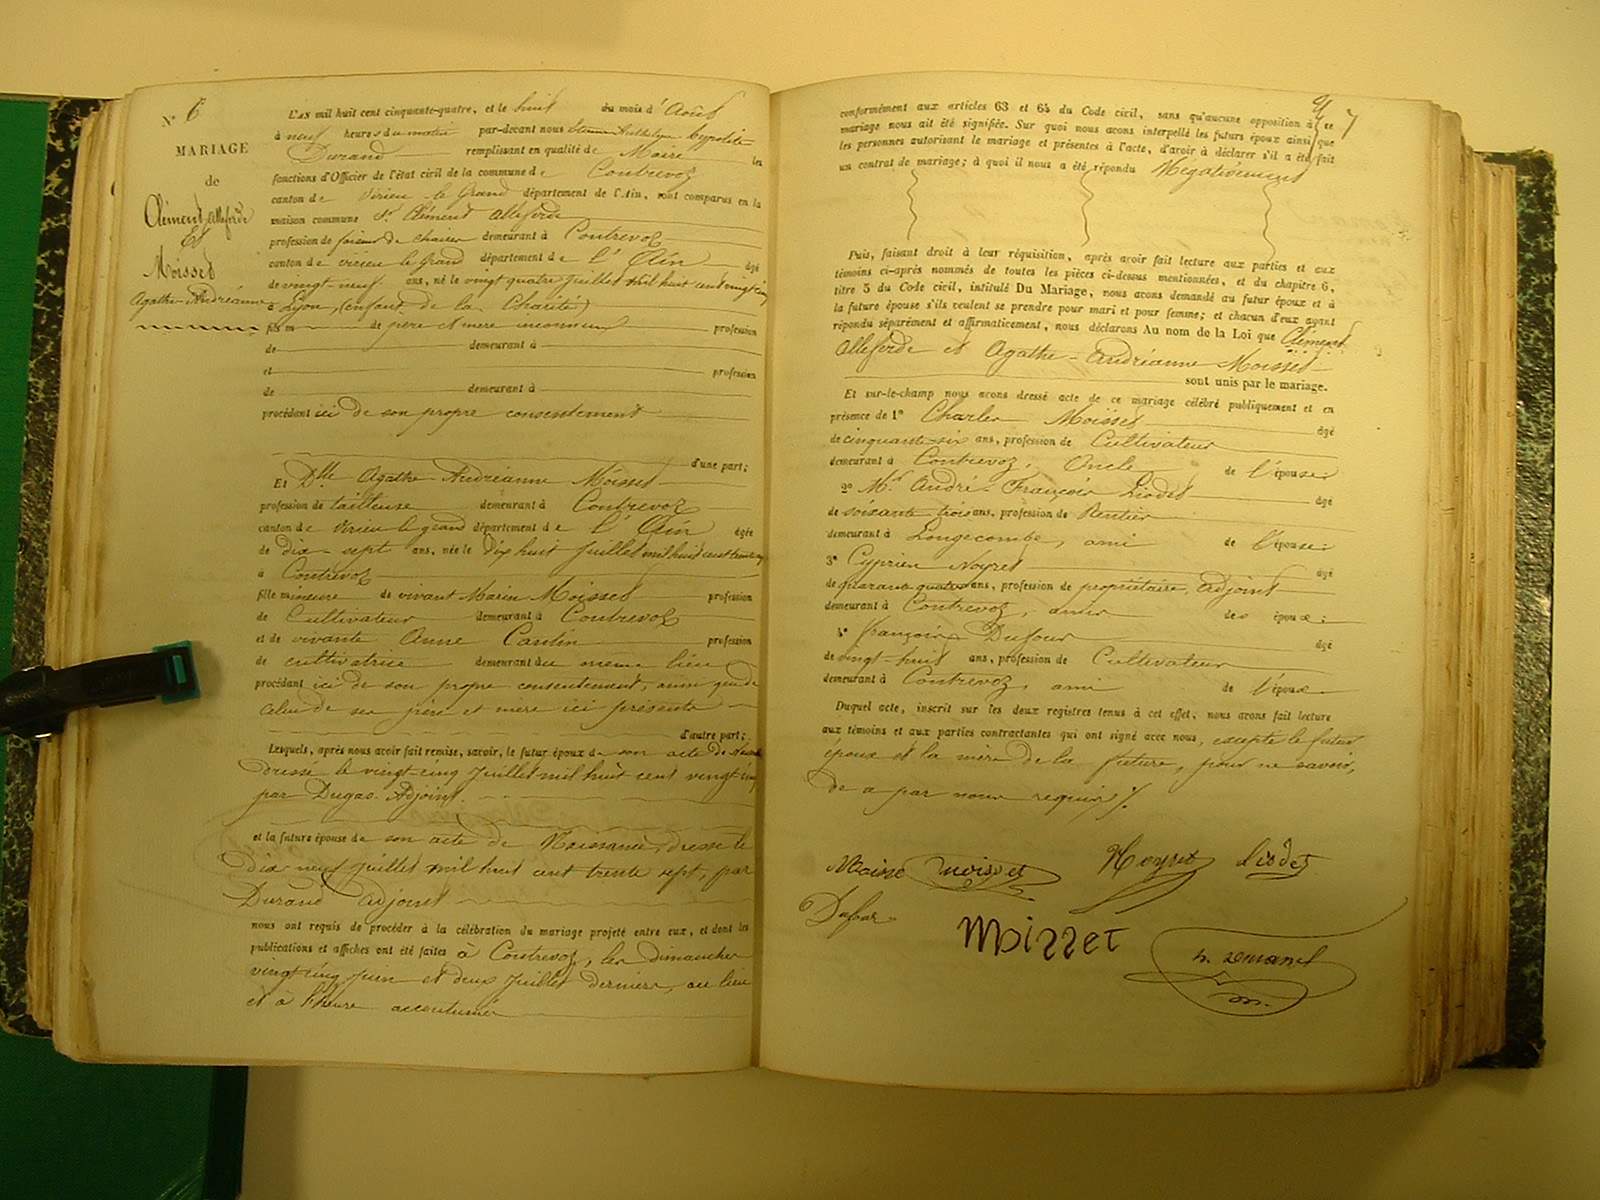 N° 6
MARIAGE
de
Clément Alleferde
Et
Moisset
Agathe-Andréanne
L'AN mil huit cent cinquante-quatre, et le huit du mois d'Août
à neuf heures du matin par-devant nous Etienne Anthelme hypolite
Durand remplissant en qualité de Maire les
fonctions d'Officier de l'état civil de la commune de Contrevoz
canton de Virieu le Grand département de l'Ain, sont comparus en la
maison commune Sr Clément Alleferde
profession de faiseur de chaises demeurant à Contrevoz
canton de virieu le Grand département de l'Ain âgé
de vingt-neuf ans, né le vingt quatre juillet mil huit cent vingt cinq
à Lyon, (enfant de la Charité)
fils de père et mère inconnus profession
de demeurant à
et profession
de demeurant à
procédant ici de son propre consentement
d'une part;
Et Dlle Agathe-Andréanne Moisset
profession de tailleuse demeurant à Contrevoz
canton de Virieu le grand département de l'Ain âgée
de dix-sept ans, née le Dix huit juillet mil huit cent trente sept
à Contrevoz
fille mineure de vivant Marin Moisset profession
de Cultivateur demeurant à Contrevoz
et de vivante Anne Cantin profession
de cultivatrice demeurant au meme lieu
procédant ici de son propre consentement, ainsi que de
celui de ses père et mère ici présents
d'autre part;
Lesquels, après nous avoir fait remise, savoir, le futur époux de son acte de Naissance
Dressé le vingt-cinq Juillet mil huit cent vingt-cinq
par Dugas Adjoint.
et la future épouse de son acte de Naissance, dressé le
dix neuf juillet mil huit cent trente sept, par
Durand adjoint
nous ont requis de procéder à la célébration du mariage projeté entre eux, et dont les
publications et affiches ont été faites à Contrevoz, les dimanches
vingt-cinq Juin et deux Juillet derniers, au lieu
et à l'heure accoutumés
7
conformément aux articles 63 et 64 du Code civil, sans qu'aucune opposition à ce
mariage nous ait été signifiée. Sur quoi nous avons interpellé les futurs époux ainsi que
les personnes autorisant le mariage et présentes à l'acte, d'avoir à déclarer s'il a été fait
un contrat de mariage; à quoi il nous a été répondu Négativement
Puis, faisant droit à leur réquisition, après avoir fait lecture aux parties et aux
témoins ci-après nommés de toutes les pièces ci-dessus mentionnées, et du chapitre 6,
titre 5 du Code civil, intitulé Du Mariage, nous avons demandé au futur époux et à
la future épouse s'ils veulent se prendre pour mari et pour femme; et chacun d'eux ayant
répondu séparément et affirmativement, nous déclarons Au nom de la Loi que Clément
Alleferde et Agathe-Andréanne Moisset
sont unis par le mariage.
Et sur-le-champ nous avons dressé acte de ce mariage célébré publiquement et en
présence de 1° Charles Moisset âgé
de cinquante-six ans, profession de Cultivateur
demeurant à Contrevoz, Oncle de l'épouse;
2° Mr André-François Liodet âgé
de soixante-trois ans, profession de Rentier
demeurant à Longecombe, ami de l'épouse;
3° Cyprien Noyret âgé
de quarante-quatre ans, profession de propriétaire, Adjoint
demeurant à Contrevoz, amis des époux;
4° François Dufour âgé
de vingt-huit ans, profession de Cultivateur
demeurant à Contrevoz, ami de l'époux
Duquel acte, inscrit sur les deux registres tenus à cet effet, nous avons fait lecture
aux témoins et aux parties contractantes qui ont signé avec nous, excepté le futur
époux et la mère de la future, pour ne savoir,
de ce par nous requis ./.
Moisset Noyret Liodet
Dufour
Moisset